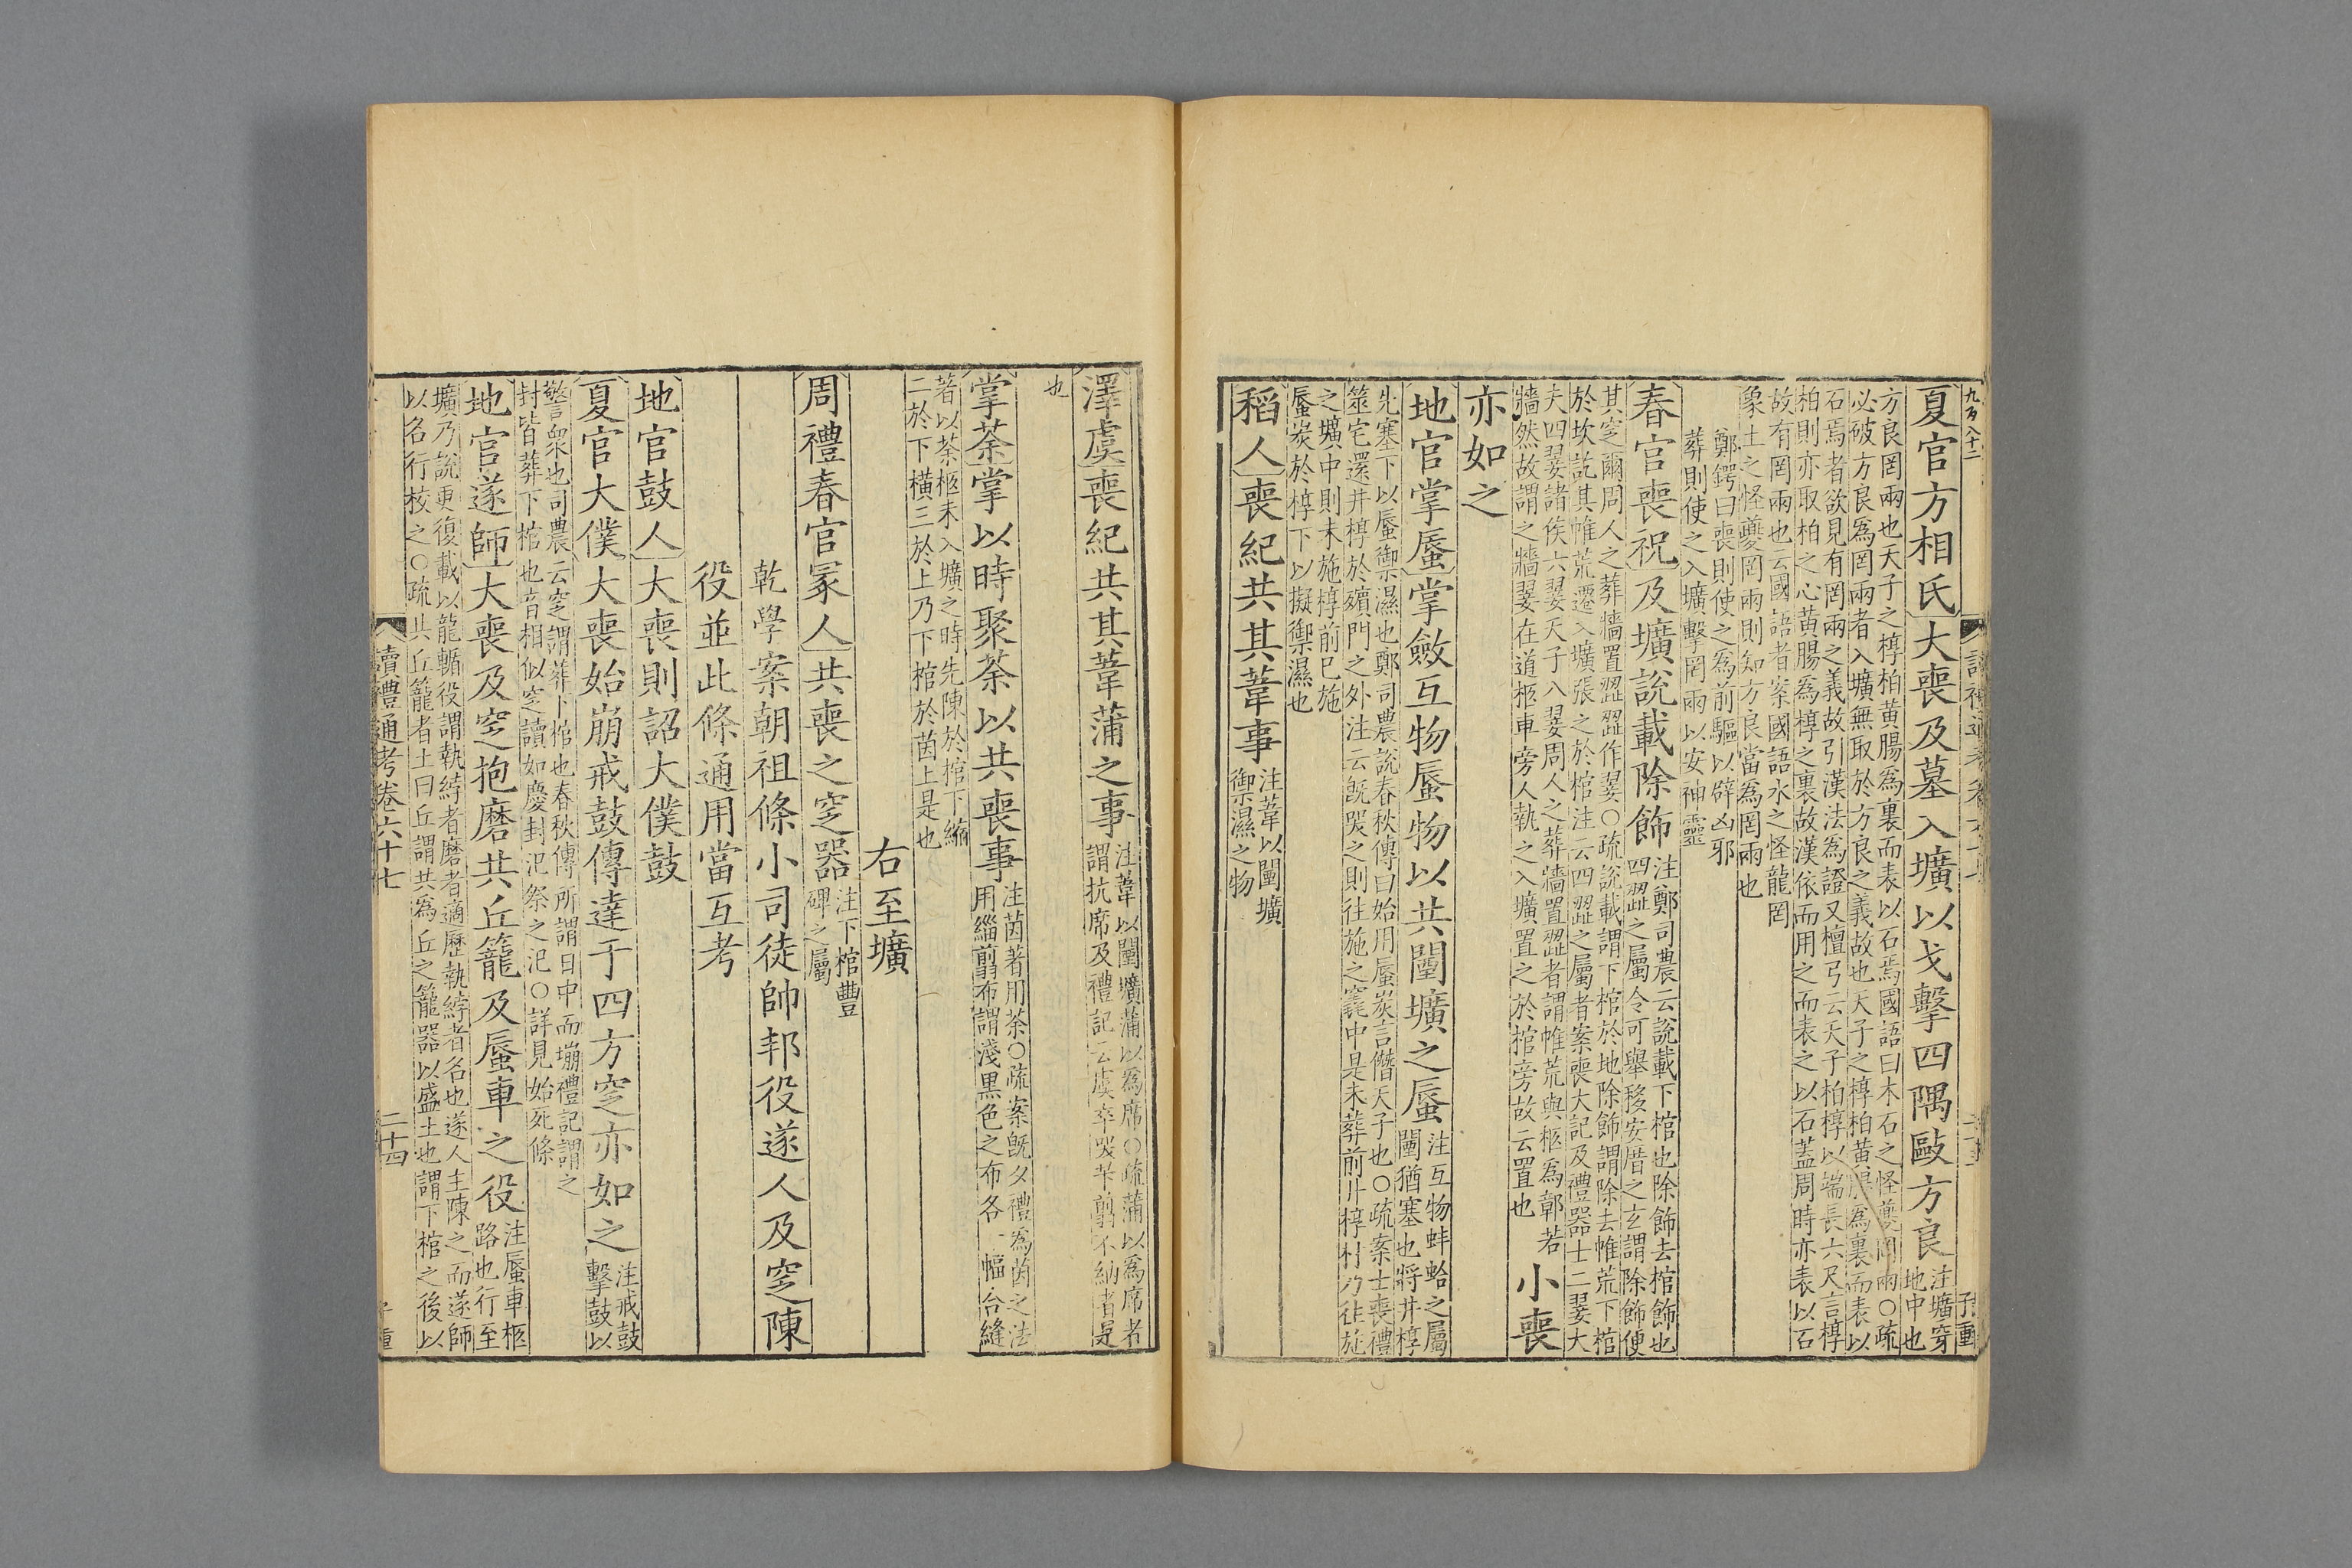 九百八十二
夏官方相氏大喪及墓入壙以戈擊四隅毆方良注壙穿地中也
方良罔兩也天子之椁柏黃腸爲裏而表以石焉國語曰木石之怪夔罔兩○疏
必破方良爲罔兩者入壙無取於方良之義故也天子之椁柏黃腸爲裏而表以
石焉者欲見有罔兩之義故引漢法爲證又檀弓云天子柏椁以端長六尺言椁
柏則亦取柏之心黃腸爲椁之裏故漢依而用之而表之以石蓋周時亦表以石
故有罔兩也云國語者案國語水之怪龍罔
象土之怪夔罔兩則知方良當爲罔兩也
鄭鍔曰喪則使之爲前驅以辟凶邪
葬則使之入壙擊罔兩以安神靈
春官喪祝及壙說載除飾注鄭司農云說載下棺也除飾去棺飾也
四翣之屬令可舉移安厝之玄謂除飾便
其窆爾周人之葬牆置翣翣作翣○疏說載謂下棺於地除飾謂除去帷荒下棺
於坎訖其帷荒還入壙張之於棺注云四翣之屬者案喪大記及禮器士二翣大
夫四翣諸侯六翣天子八翣周人之葬牆置翣者謂帷荒與柩爲鄣若
牆然故謂之牆翣在道柩車旁人執之入壙置之於棺旁故云置也
小喪
亦如之
地官掌蜃掌斂互物蜃物以共闉壙之蜃注互物蚌蛤之屬
闉猶塞也將井椁
先塞下以蜃禦濕也鄭司農說春秋傳曰始用蜃炭言僭天子也○疏案士喪禮
筮宅還井椁於殯門之外注云旣哭之則往施之竁中是未葬前井椁材乃往施
之壙中則未施椁前已施
蜃炭於椁下以擬禦濕也
稻人喪紀共其葦事注葦以闉壙
禦濕之物
澤虞喪紀共其葦蒲之事注葦以闉壙蒲以爲席○疏蒲以爲席者
謂抗席及禮記云虞卒哭苄翦不納者是
也
掌荼掌以時聚荼以共喪事注茵著用荼○疏案旣夕禮爲茵之法
用緇翦布謂淺黑色之布各一幅合縫
著以荼柩未入壙之時先陳於棺下縮
二於下橫三於上乃下棺於茵上是也
右至壙
周禮春官冢人共喪之窆器注下棺豐
碑之屬
乾學案朝祖條小司徒帥邦役遂人及窆陳
役並此條通用當互考
地官鼓人大喪則詔大僕鼓
夏官大僕大喪始崩戒鼓傳達于四方窆亦如之注戒鼓
擊鼓以
警衆也司農云窆謂葬下棺也春秋傳所謂日中而塴禮記謂之
封皆葬下棺也音相似窆讀如慶封汜祭之汜○詳見始死條
地官遂師大喪及窆抱磨共丘籠及蜃車之役注蜃車柩
路也行至
壙乃說更復載以龍輴役謂執綍者磨者適歷執綍者名也遂人主陳之而遂師
以名行校之○疏共丘籠者土曰丘謂共爲丘之籠器以盛土也謂下棺之後以
讀禮通考卷六十七
二十四